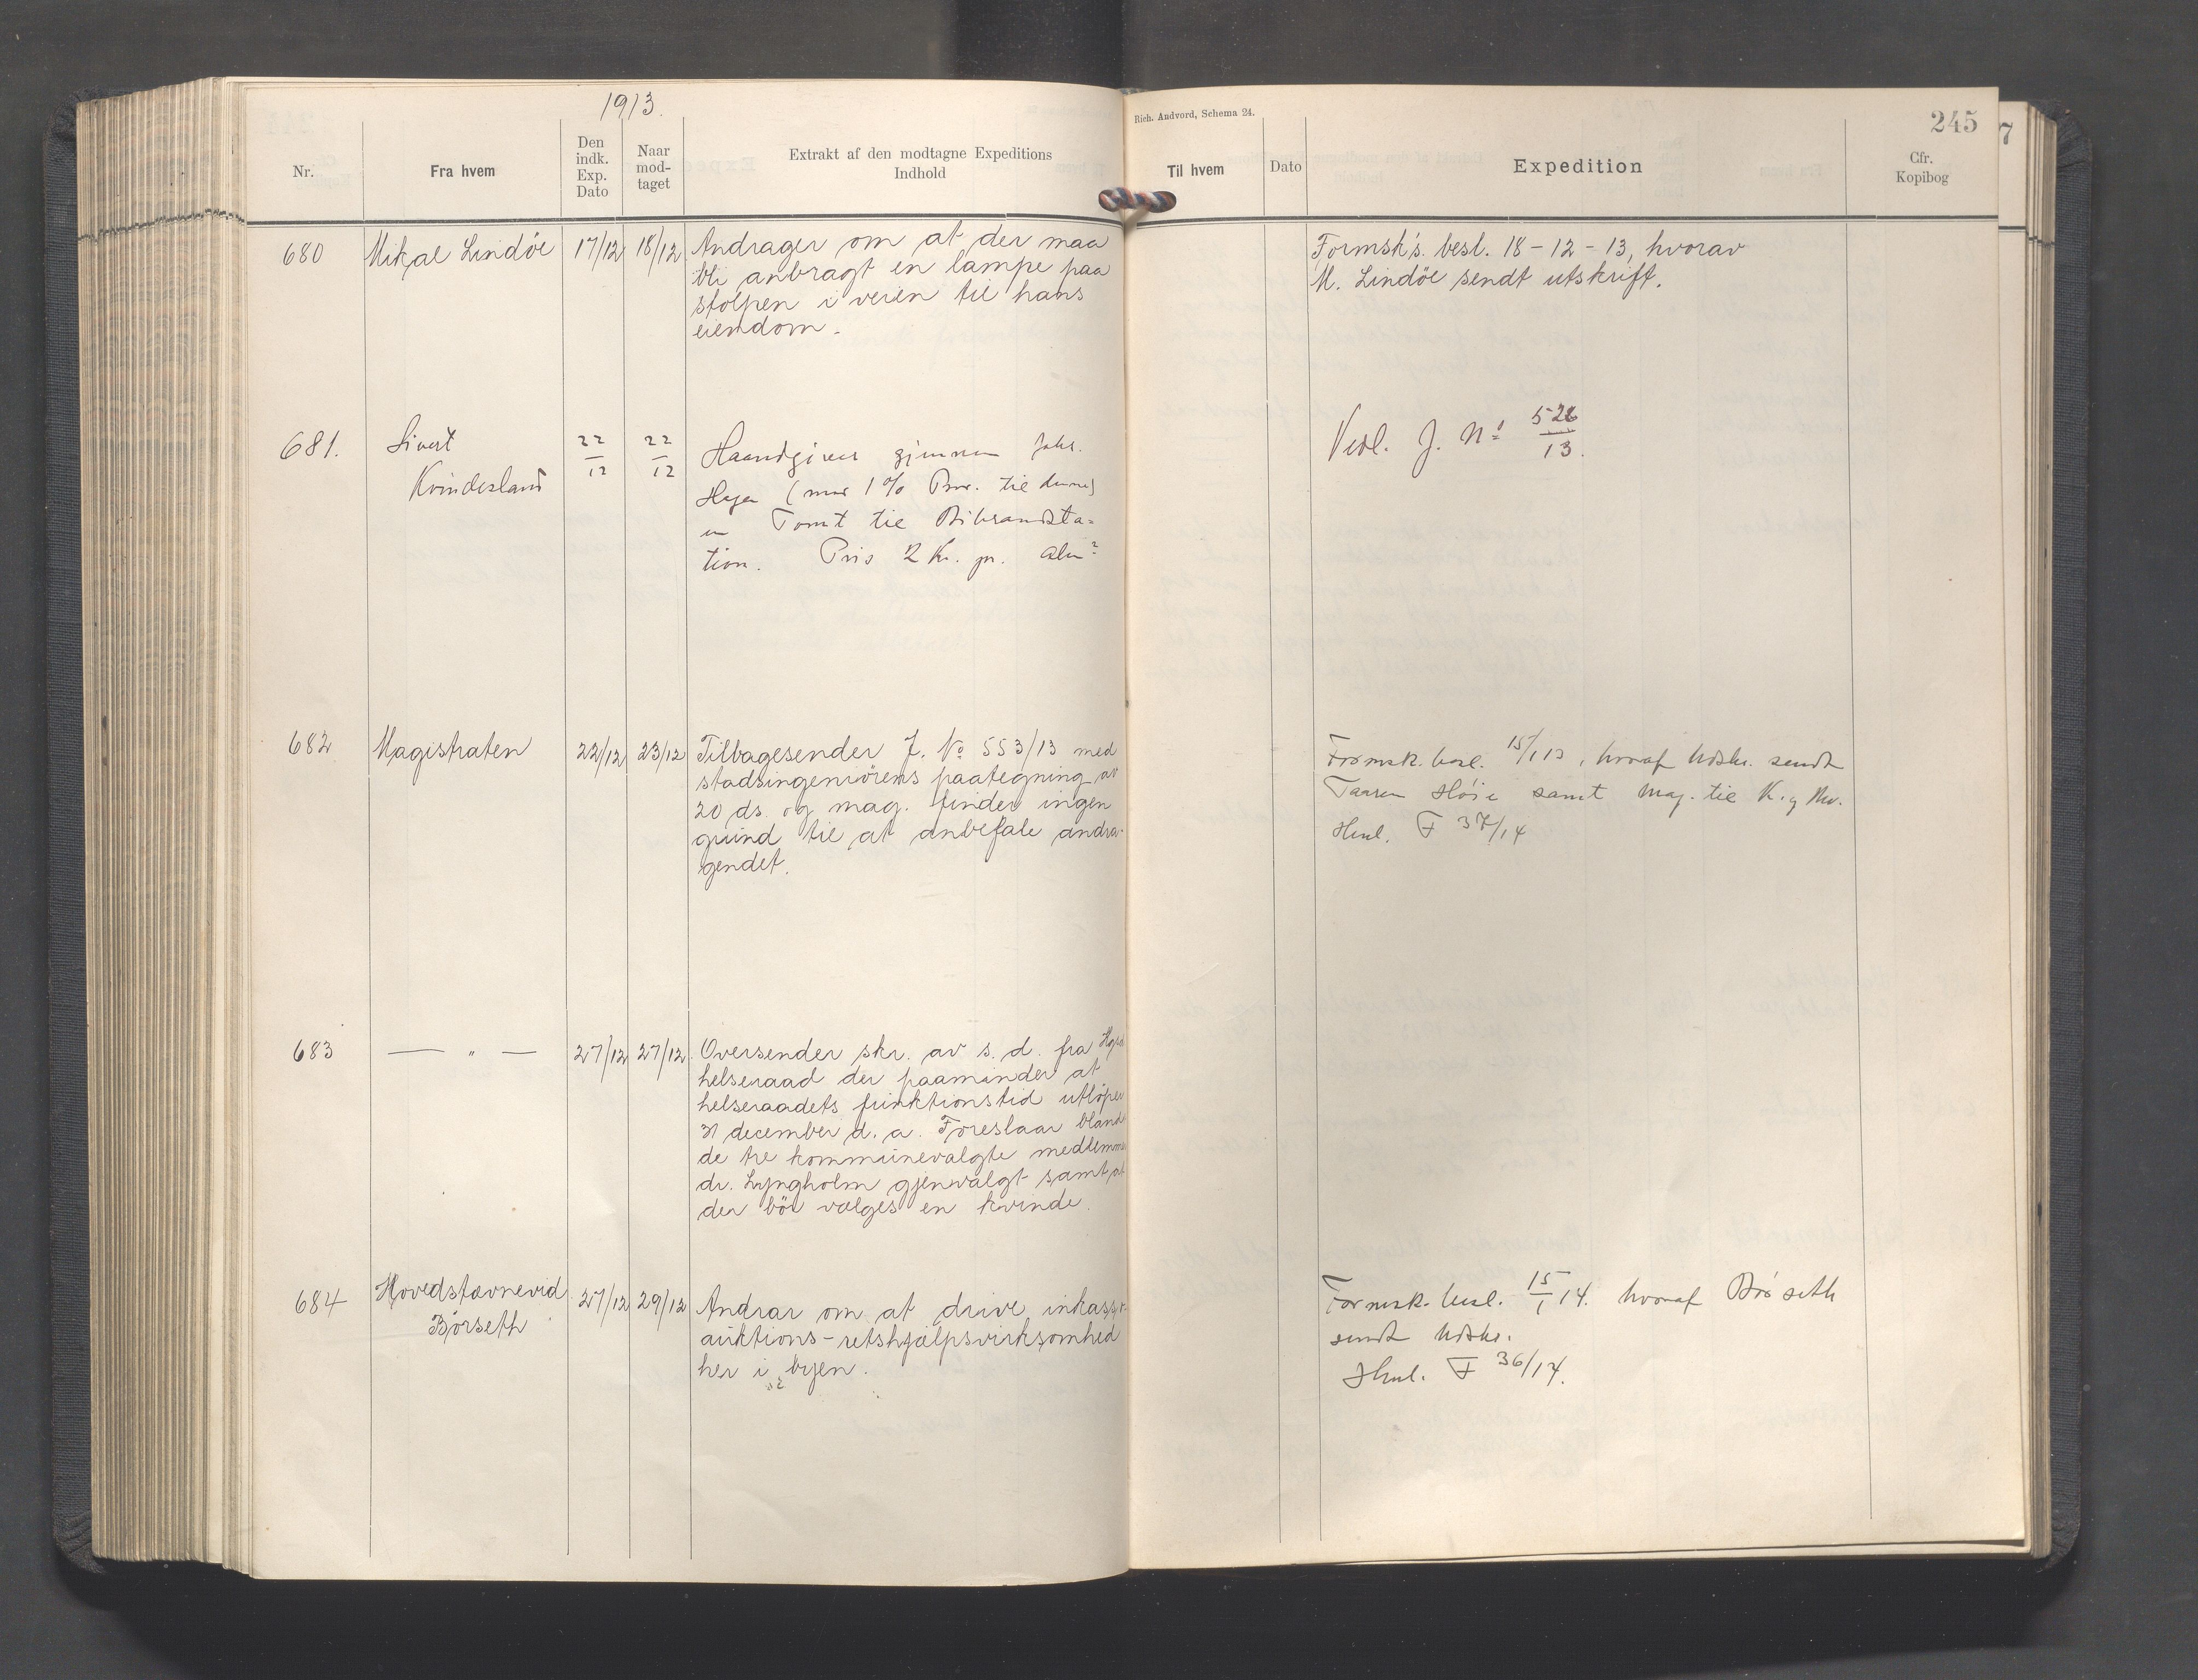 1913.
Nr.
Fra hvem
Den indk. Exp. Dato
Naar mod- taget
Extrakt af den modtagne Expeditions
Indhold
Rich. Andvord, Schema 24.
245
7
Til hvem
Dato
Expedition
Cfr.
Kopibog
680 Mikal Lindöe 17/12 18/12 Andrager om at der maa
bli anbragt en lampe paa
stolpen i veien til hans
eiendom.
Formsk's. besl. 18-12-13, hvorav
M. Lindöe sendt utskrift.
681. Sivert
Kvindesland
22/12 22/12
Haandgiver gjennem Johs.
Hagen (mod 1% Prov. til denne)
en Tomt til Bibrandsta-
tion. Pris 2 Kr. pr. Alen²
Vedl. J. No 526/13.
682 Magistraten 22/12 23/12 Tilbagesender J. No 553/13 med
stadsingeniörens paategning av
20 ds. og mag. finder ingen
grund til at anbefale andra-
gendet.
Formsk. besl. 15/1 13, hvoraf Udskr. sendt
Høie samt Mag. til
Henl. F 37/14
683 — " — 27/12 27/12. Oversender skr. av s. d. fra
helseraad der paaminder at
helseraadets funktionstid utlöper
31 december d. a. Foreslaar blandt
de tre kommunevalgte medlemmer
dr. Lyngholm gjenvalgt samt at
der bör vælges en kvinde.
684 Hovedstævnevid
Börseth
27/12 29/12 Andrar om at drive inkasso-
auktions-retshjælpsvirksomhed
her i byen.
Formsk. besl. 15/1 14. hvoraf Börseth
sendt Udskr.
Henl. F 36/14.